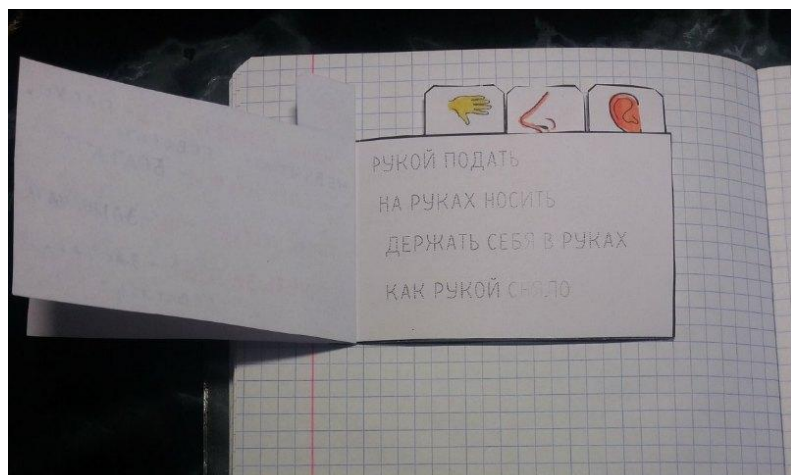 РУКОЙ ПОДАТЬ
НА РУКАХ НОСИТЬ
ДЕРЖАТЬ СЕБЯ В РУКАХ
КАК РУКОЙ СНЯЛО